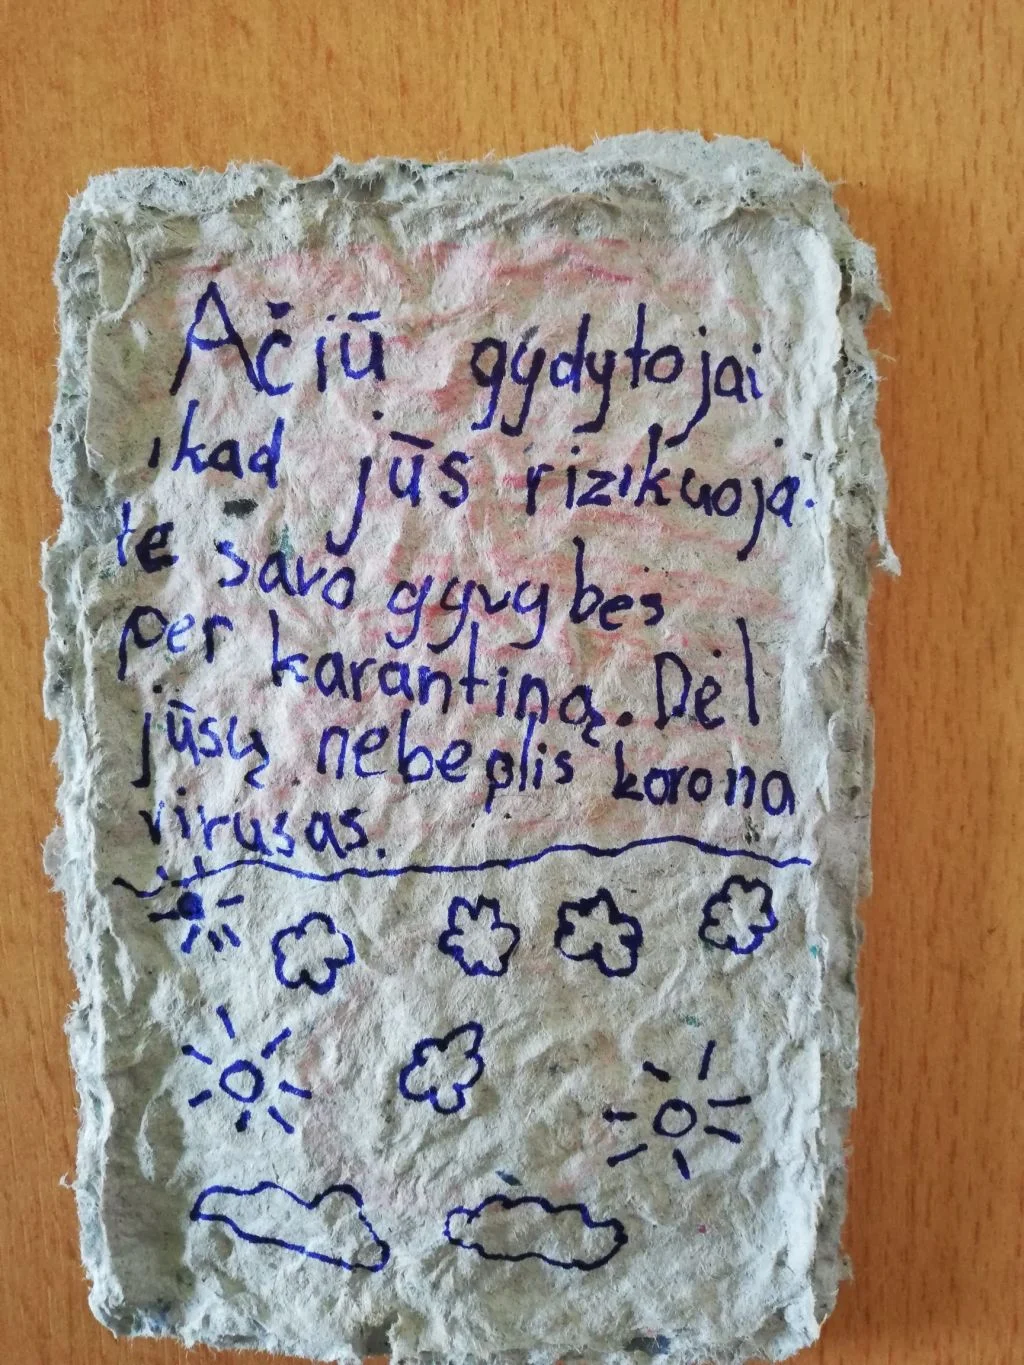 Ačiū gydytojai
,kad jūs rizikuoja-
te savo gyvybes
per karantiną. Dėl
jūsų nebeplis korona
virusas.